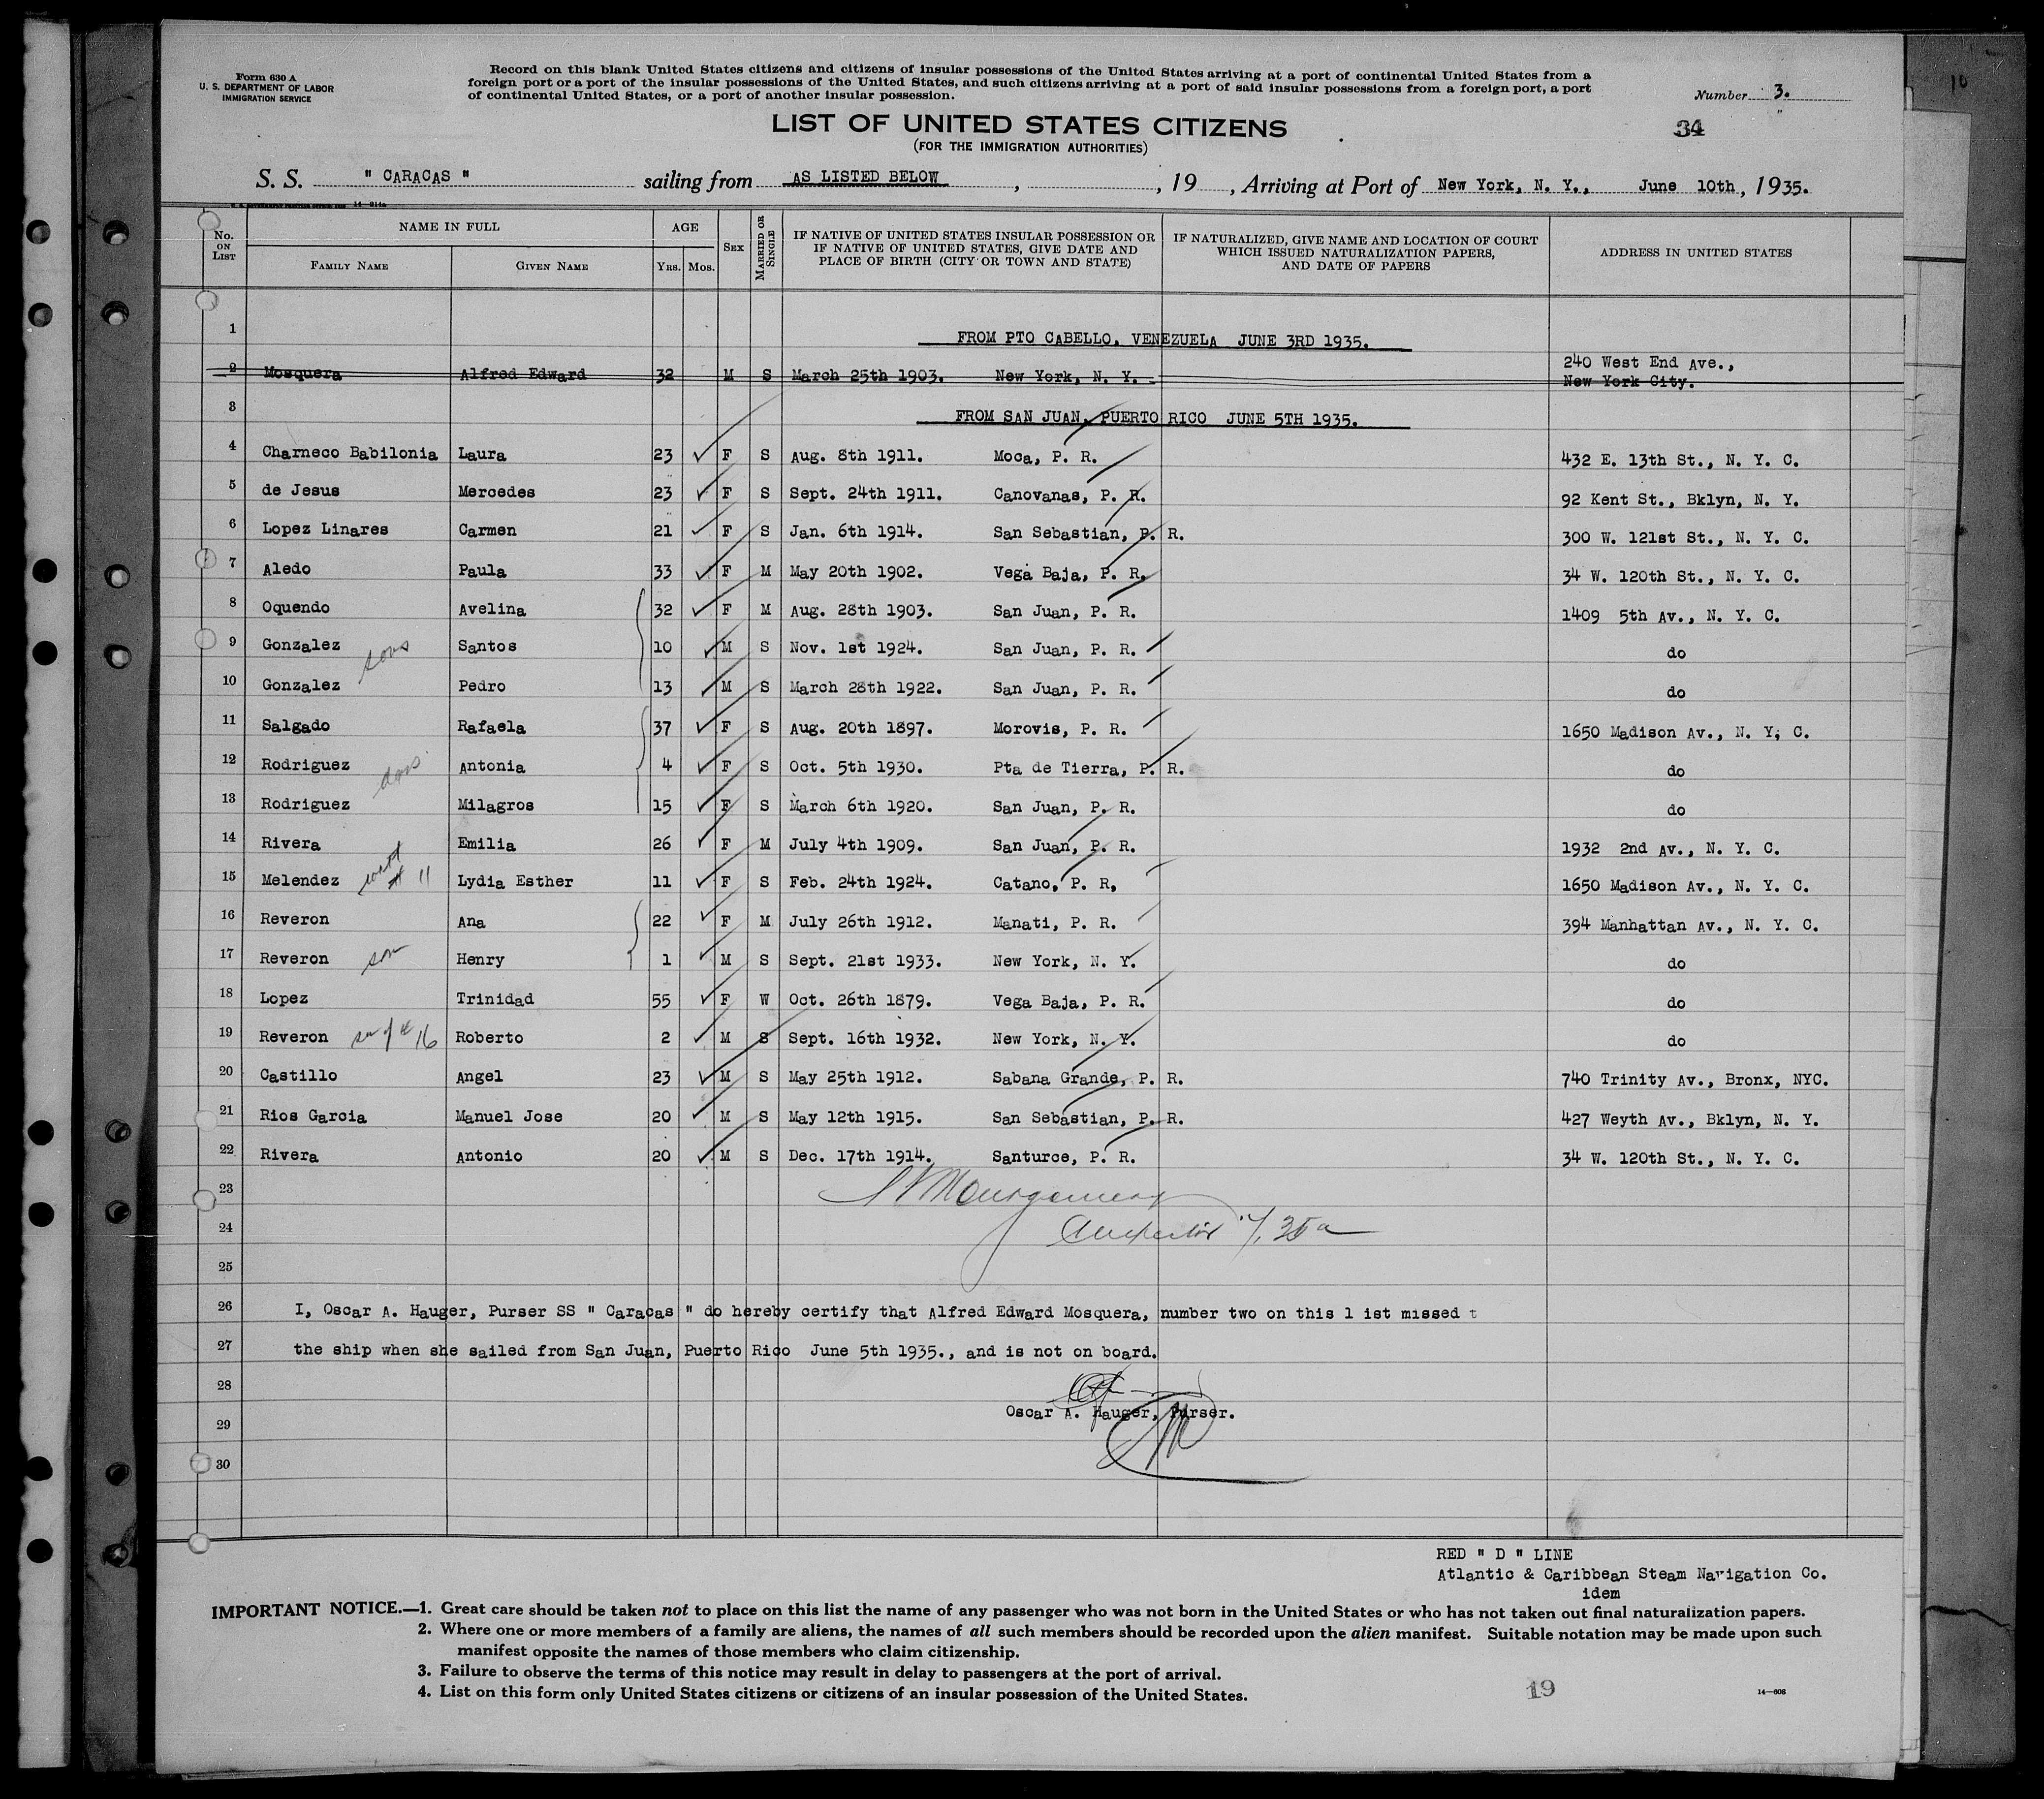 Form 630 A
U. S. DEPARTMENT OF LABOR
IMMIGRATION SERVICE
Record on this blank United States citizens and citizens of insular possessions of the United States arriving at a port of continental United States from a
foreign port or a port of the insular possessions of the United States, and such citizens arriving at a port of said insular possessions from a foreign port, a port
of continental United States, or a port of another insular possession.
Number 3.
10
34
LIST OF UNITED STATES CITIZENS
(FOR THE IMMIGRATION AUTHORITIES)
S. S. " CARACAS " sailing from AS LISTED BELOW , , 19 , Arriving at Port of New York, N. Y., June 10th, 1935.
14—214a
No. ON LIST NAME IN FULL AGE SEX MARRIED OR SINGLE IF NATIVE OF UNITED STATES INSULAR POSSESSION OR IF NATIVE OF UNITED STATES, GIVE DATE AND PLACE OF BIRTH (CITY OR TOWN AND STATE) IF NATURALIZED, GIVE NAME AND LOCATION OF COURT WHICH ISSUED NATURALIZATION PAPERS, AND DATE OF PAPERS ADDRESS IN UNITED STATES
FAMILY NAME GIVEN NAME YRS. MOS.
1 FROM PTO CABELLO, VENEZUELA JUNE 3RD 1935.
2 Mosquera Alfred Edward 32 M S March 25th 1903. New York, N. Y. 240 West End Ave.,
New York City.
3 FROM SAN JUAN, PUERTO RICO JUNE 5TH 1935.
4 Charneco Babilonia Laura 23 ✓ F S Aug. 8th 1911. Moca, P. R. 432 E. 13th St., N. Y. C.
5 de Jesus Mercedes 23 ✓ F S Sept. 24th 1911. Canovanas, P. R. 92 Kent St., Bklyn, N. Y.
6 Lopez Linares Carmen 21 ✓ F S Jan. 6th 1914. San Sebastian, P. R. 300 W. 121st St., N. Y. C.
7 Aledo Paula 33 ✓ F M May 20th 1902. Vega Baja, P. R. 34 W. 120th St., N. Y. C.
8 Oquendo Avelina 32 ✓ F M Aug. 28th 1903. San Juan, P. R. 1409 5th Av., N. Y. C.
9 Gonzalez sons Santos 10 ✓ M S Nov. 1st 1924. San Juan, P. R. do
10 Gonzalez Pedro 13 ✓ M S March 28th 1922. San Juan, P. R. do
11 Salgado Rafaela 37 ✓ F S Aug. 20th 1897. Morovis, P. R. 1650 Madison Av., N. Y. C.
12 Rodriguez Antonia 4 ✓ F S Oct. 5th 1930. Pta de Tierra, P. R. do
13 Rodriguez Milagros 15 ✓ F S March 6th 1920. San Juan, P. R. do
14 Rivera Emilia 26 ✓ F M July 4th 1909. San Juan, P. R. 1932 2nd Av., N. Y. C.
15 Melendez # 11 Lydia Esther 11 ✓ F S Feb. 24th 1924. Catano, P. R. 1650 Madison Av., N. Y. C.
16 Reveron Ana 22 ✓ F M July 26th 1912. Manati, P. R. 394 Manhattan Av., N. Y. C.
17 Reveron son Henry 1 ✓ M S Sept. 21st 1933. New York, N. Y. do
18 Lopez Trinidad 55 ✓ F W Oct. 26th 1879. Vega Baja, P. R. do
19 Reveron son of # 16 Roberto 2 ✓ M S Sept. 16th 1932. New York, N. Y. do
20 Castillo Angel 23 ✓ M S May 25th 1912. Sabana Grande, P. R. 740 Trinity Av., Bronx, NYC.
21 Rios Garcia Manuel Jose 20 ✓ M S May 12th 1915. San Sebastian, P. R. 427 Weyth Av., Bklyn, N. Y.
22 Rivera Antonio 20 ✓ M S Dec. 17th 1914. Santurce, P. R. 34 W. 120th St., N. Y. C.
23
24
25
26 I, Oscar A. Hauger, Purser SS " Caracas " do hereby certify that Alfred Edward Mosquera, number two on this l ist missed t
27 the ship when she sailed from San Juan, Puerto Rico June 5th 1935., and is not on board.
28
29 Oscar A. Hauger, Purser.
30
RED " D " LINE
Atlantic & Caribbean Steam Navigation Co.
idem
IMPORTANT NOTICE.—1. Great care should be taken not to place on this list the name of any passenger who was not born in the United States or who has not taken out final naturalization papers.
2. Where one or more members of a family are aliens, the names of all such members should be recorded upon the alien manifest. Suitable notation may be made upon such
manifest opposite the names of those members who claim citizenship.
3. Failure to observe the terms of this notice may result in delay to passengers at the port of arrival.
4. List on this form only United States citizens or citizens of an insular possession of the United States.
19
14—608